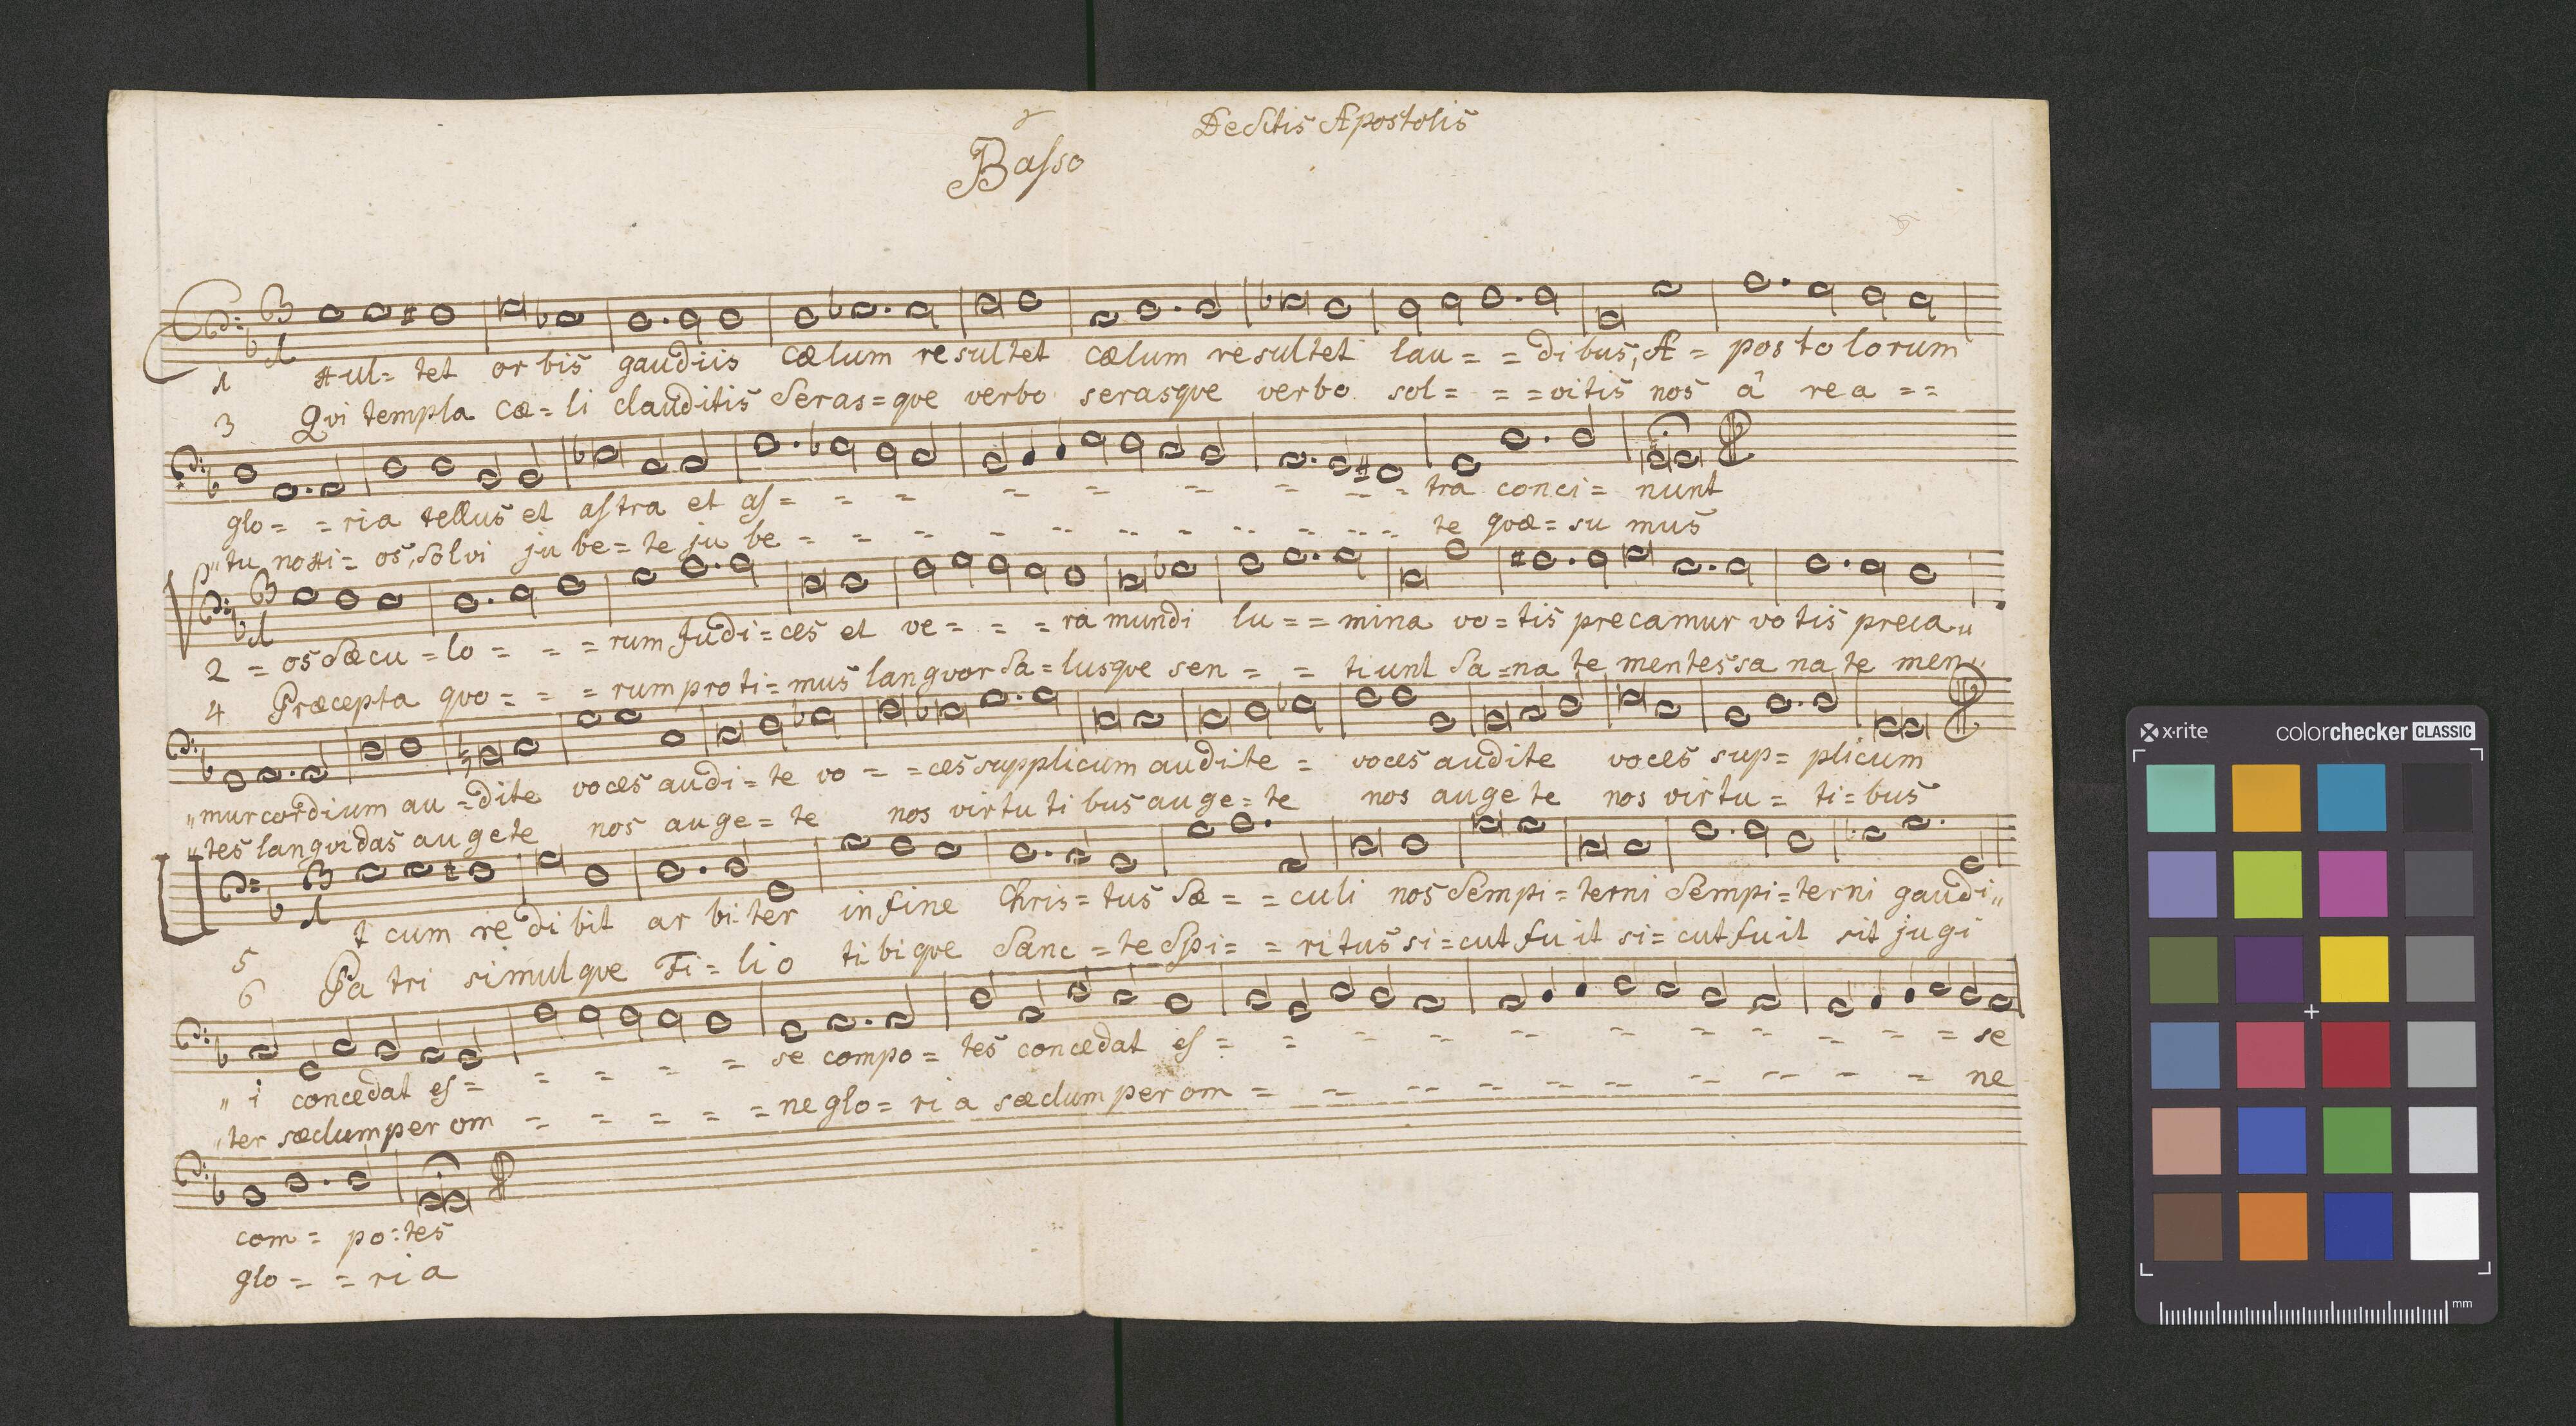 De Sctis Apostolis
Basso
1 xul= tet or bis gaudiis cælum resultet cælum resultet lau= = dibus, A= postolorum
3 Qvi templa cæ=li clauditis Seras=qve verbo serasqve verbo sol= = =vitis nos â rea ==
glo= =ria tellus et astra et as= - - - - - - - - tra conci= nunt
"tu noxi= os, solvi jube=te ju be - - - - - - - - te qvæ=su mus
2 =os Sæcu=lo= = =rum Judi=ces et ve= = =ra mundi lu==mina vo=tis precamur votis preca"
4 Præcepta qvo= = =rum proti=mus langvor Sa=lusqve sen= = tiunt Sa=na te mentes sa na te men"
"mur cordium au=dite voces audi=te vo= =ces supplicum audite= voces audite voces sup= plicum
"tes langvidas augete nos auge=te nos virtutibus auge=te nos augete nos virtu= ti=bus
5 t cum redibit arbiter in fine Chris=tus Sæ= =culi nos Sempi=terni Sempi=terni gaudi"
6 Patri simulqve Fi=lio tibiqve Sanc=te Spi= =ritus si=cut fuit si=cut fuit sit jugi
"i concedat es= = = = = se compo=tes concedat es= = - - - - - - - - = se
"ter sæclum per om = = = = =ne glo=ria sæclum per om = - - - - - - - - - ne
com= po=tes
glo= =ria
x-rite colorchecker CLASSIC
mm